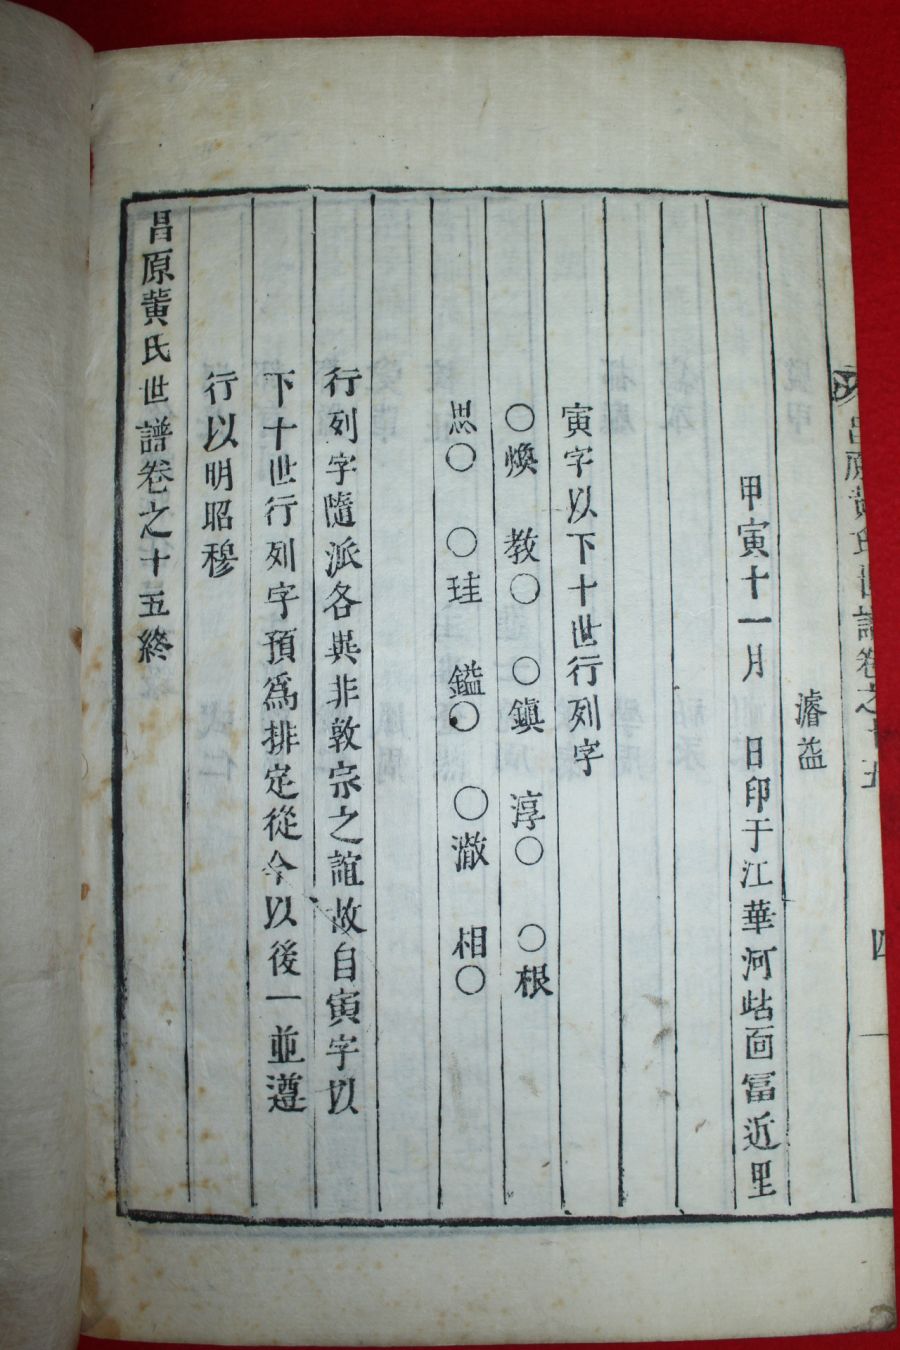 昌原黃氏世譜卷之十五 四
濬益
甲寅十一月 日印于江華河岾面冨近里
寅字以下十世行列字
○煥 教○ ○鎭 淳○ ○根
思○ ○珪 鎰○ ○澈 相○
行列字隨派各異非敦宗之誼故自寅字以
下十世行列字預爲排定從今以後一並遵
行以明昭穆
昌原黃氏世譜卷之十五終